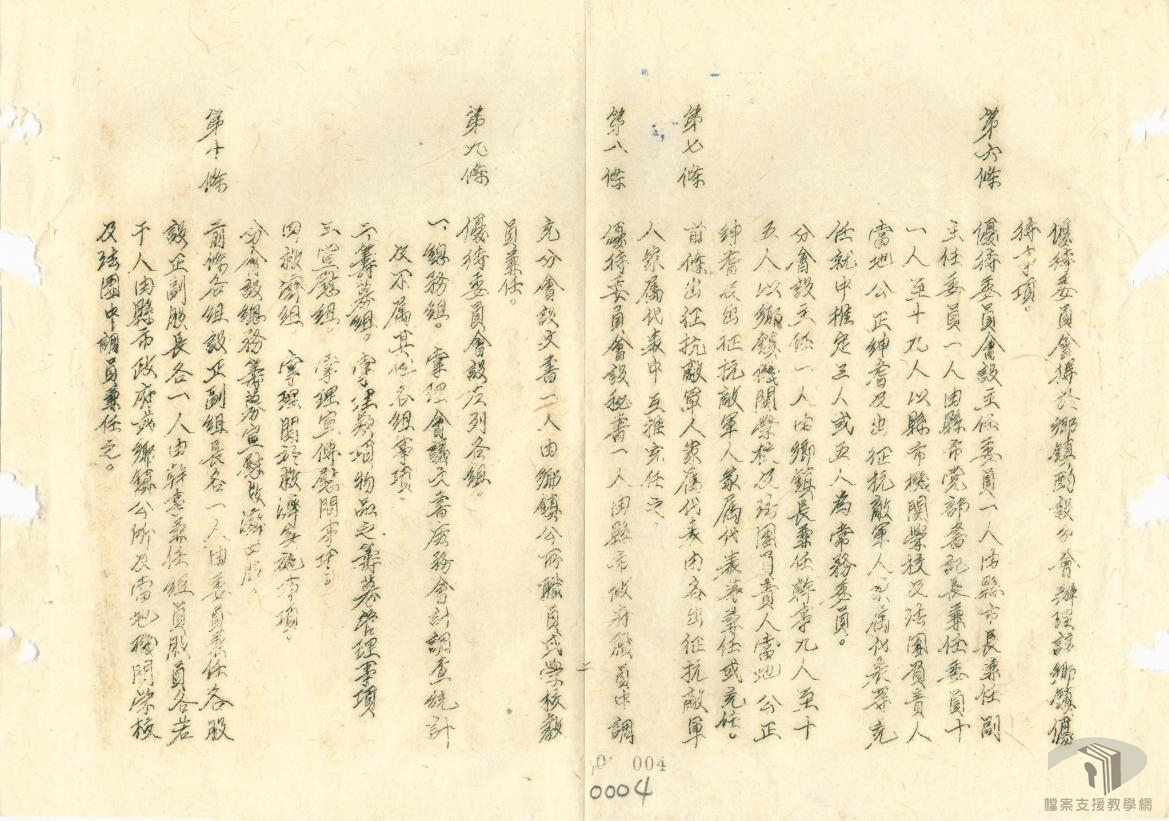 優待委員會得於鄉鎮酌設分會辦理該鄉鎮優
待事項。
第六條 優待委員會設主任委員一人由縣市長兼任副
主任委員一人由縣市党部書記長兼任委員十
一人至十九人以縣市機關學校及法團負責人
當地公正紳耆及出征抗敵軍人家属代表等充
任就中推定三人或五人為常務委員。
分會設主任一人由鄉鎮長兼任幹事九人至十
五人以鄉鎮機關學校及法團負責人當地公正
紳耆及出征抗敵軍人家属代表等兼任或充任。
第七條 前條出征抗敵軍人家属代表由各出征抗敵軍
人家属代表中互推充任之。
第八條 優待委員會設秘書一人由縣市政府職員中調
充分會設文書一人由鄉鎮公所職員或學校教
員兼任。
第九條 優待委員會設左列各組。
一、總務組。掌理會議文書庶務會計調查統計
及不属其他各組事項。
二、籌募組。掌理款項物品之籌募管理事項
三、宣慰組。掌理宣傳慰問事項
四、救濟組 掌理關於救濟實施事項。
分會設總務籌募宣慰救濟四股。
第十條 前條各組設正副組長各一人由委員兼任各股
設正副股長各一人由幹事兼任組員股員各若
干人由縣市政府或鄉鎮公所及當地機関學校
及法團中調員兼任之。
004
0004
檔案支援教學網